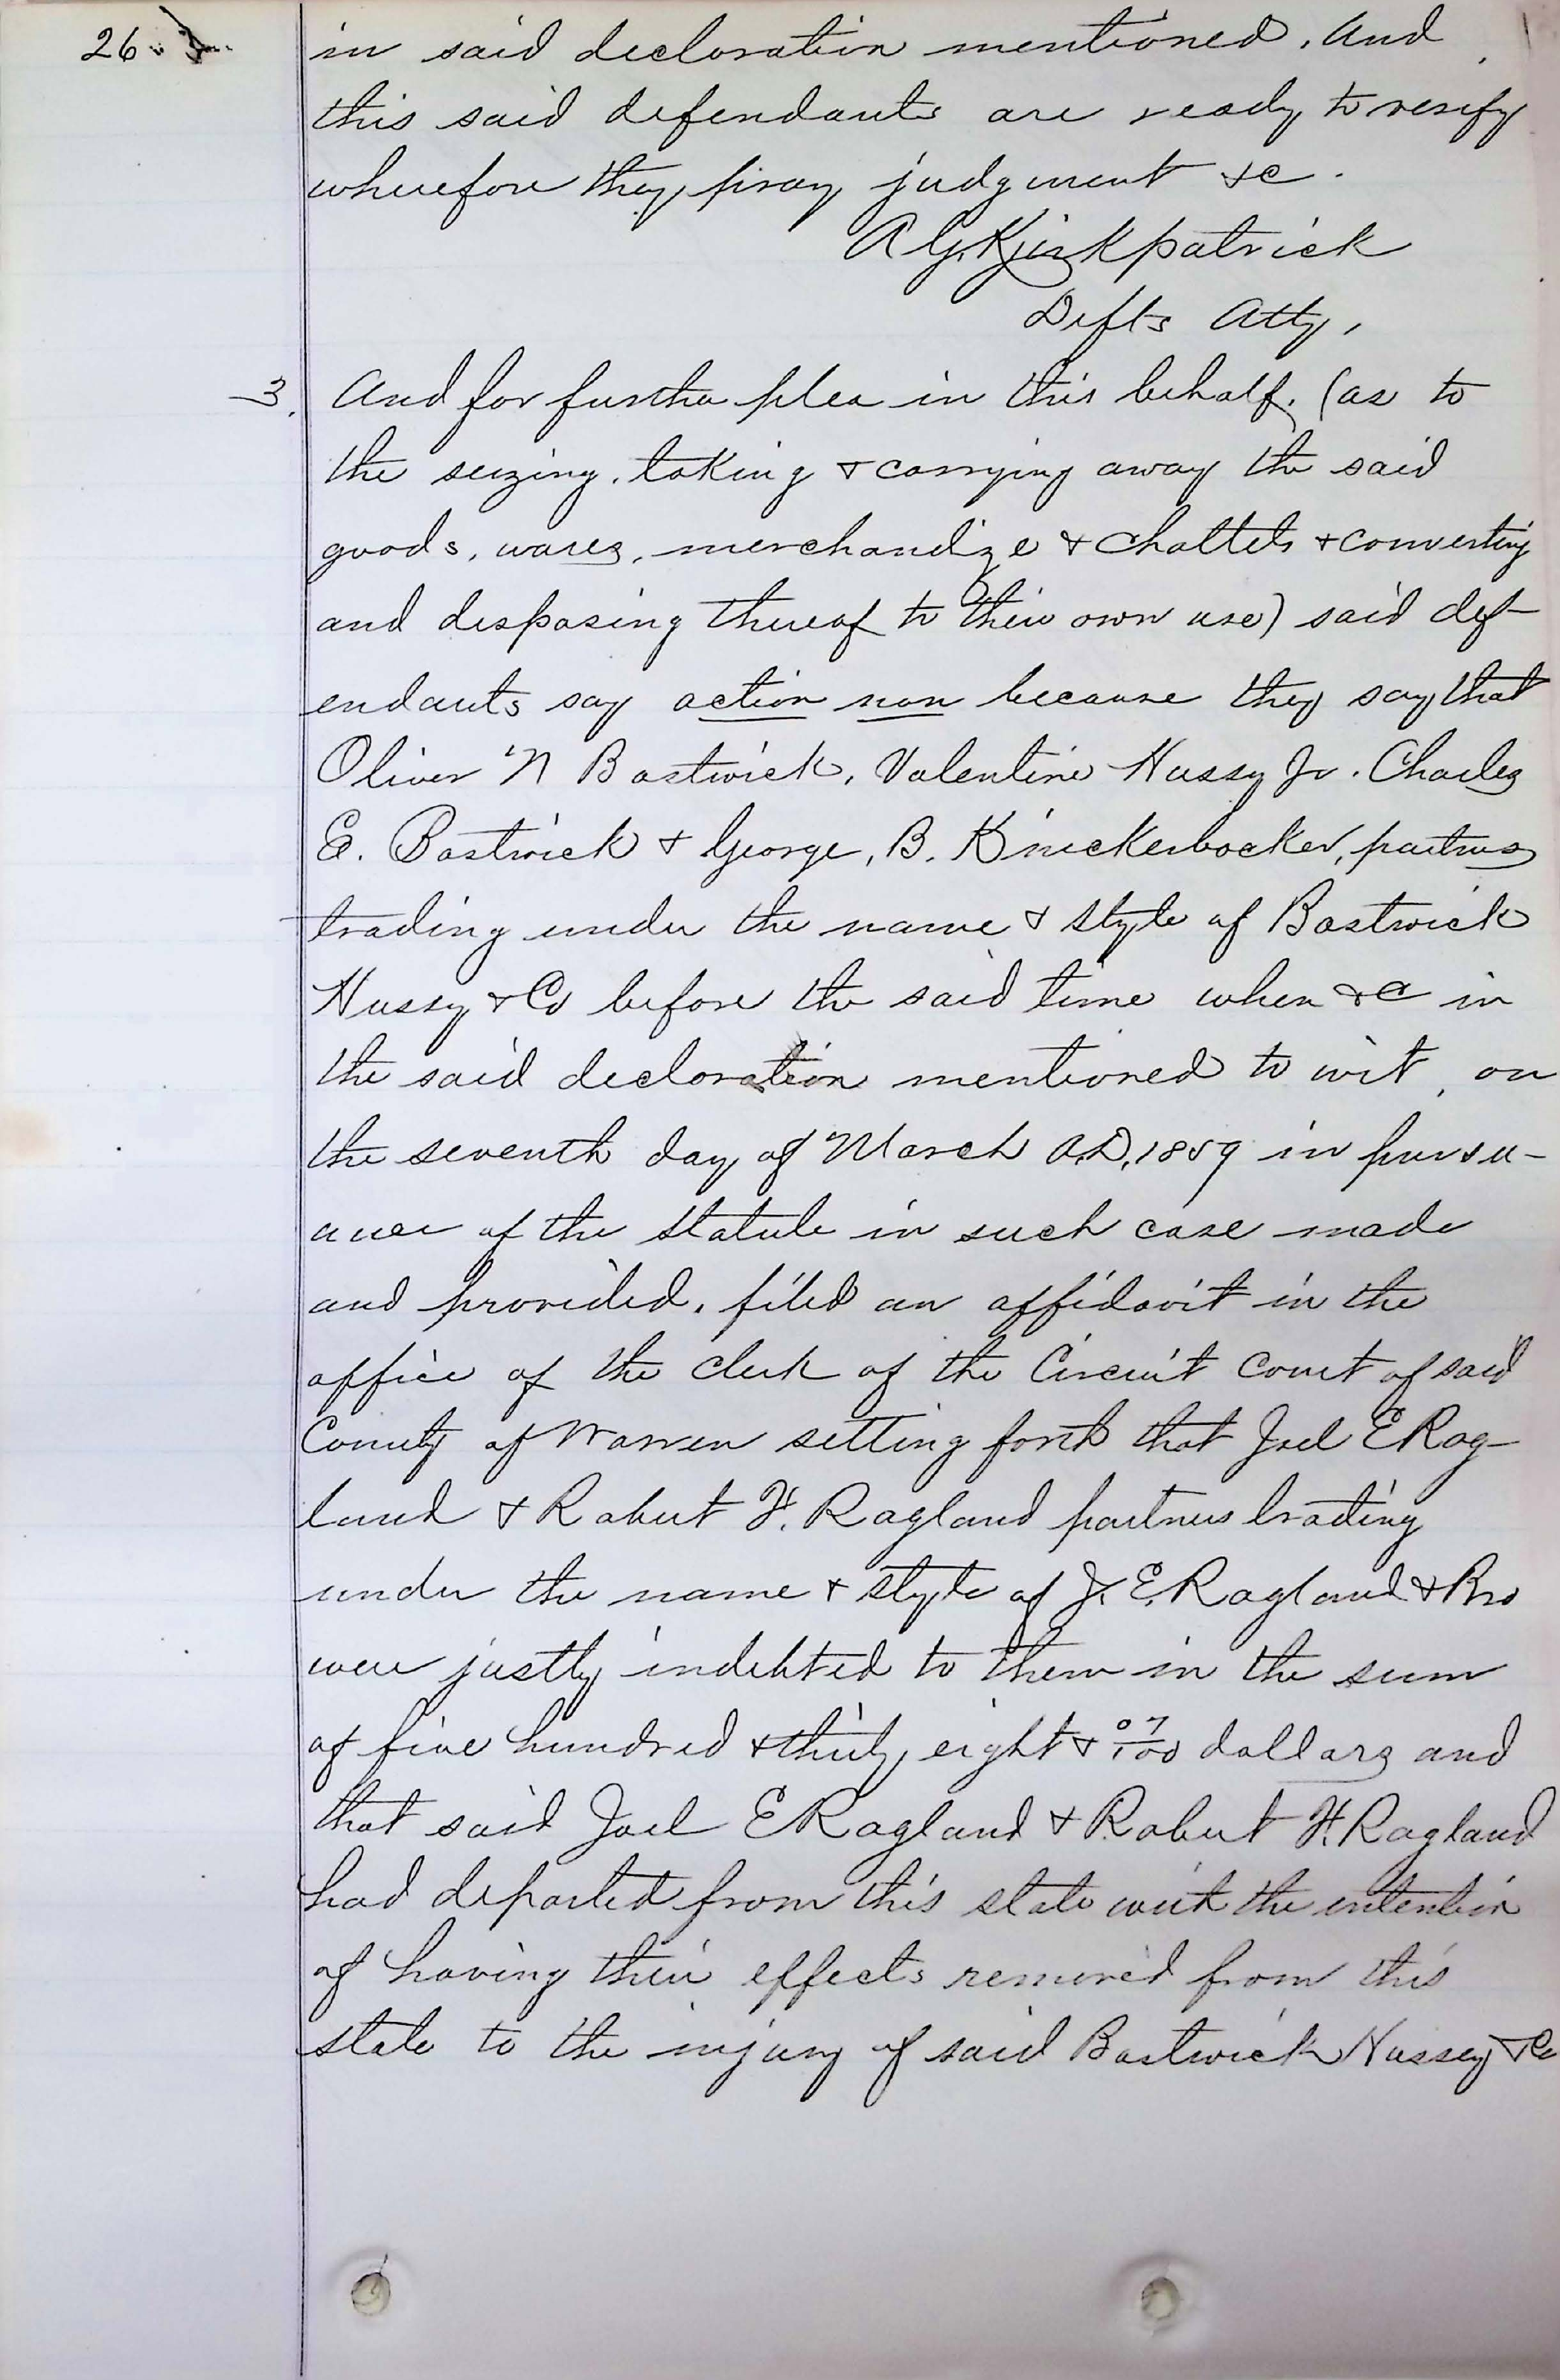 26
in said declaration mentioned. And
this said defendants are ready to verify
wherefore they pray judgment &c.
A G. Kirkpatrick
Defts Atty,
3. And for further plea in this behalf. (as to
the seizing, taking & carrying away the said
goods, wares, merchandize & chattels & converting
and disposing thereof to their own use) said def-
endants say action non because they say that
Oliver N Bostwick, Valentine Hussy Jr. Charles
E. Bostwick & George, B. Knickerbocker, partners
trading under the name & style of Bostwick
Hussy & Co before the said time when &c in
the said declaration mentioned to wit, on
the seventh day of March A.D. 1859 in pursu-
ance of the statute in such case made
and provided, filed an affidavit in the
office of the clerk of the Circuit Court of said
County of Warren setting forth that Joel E Rag-
land & Robert H. Ragland partners trading
under the name & style of J. E. Ragland & Bro
were justly indebted to them in the sum
of five hundred & thirty eight & 07/100 dollars and
that said Joel E Ragland & Robert H. Ragland
had departed from this state with the intention
of having their effects removed from this
state to the injury of said Bostwick Hussey & Co